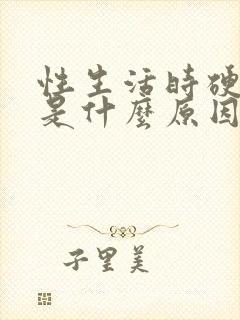 性生活時硬
是什麼原因
子里美